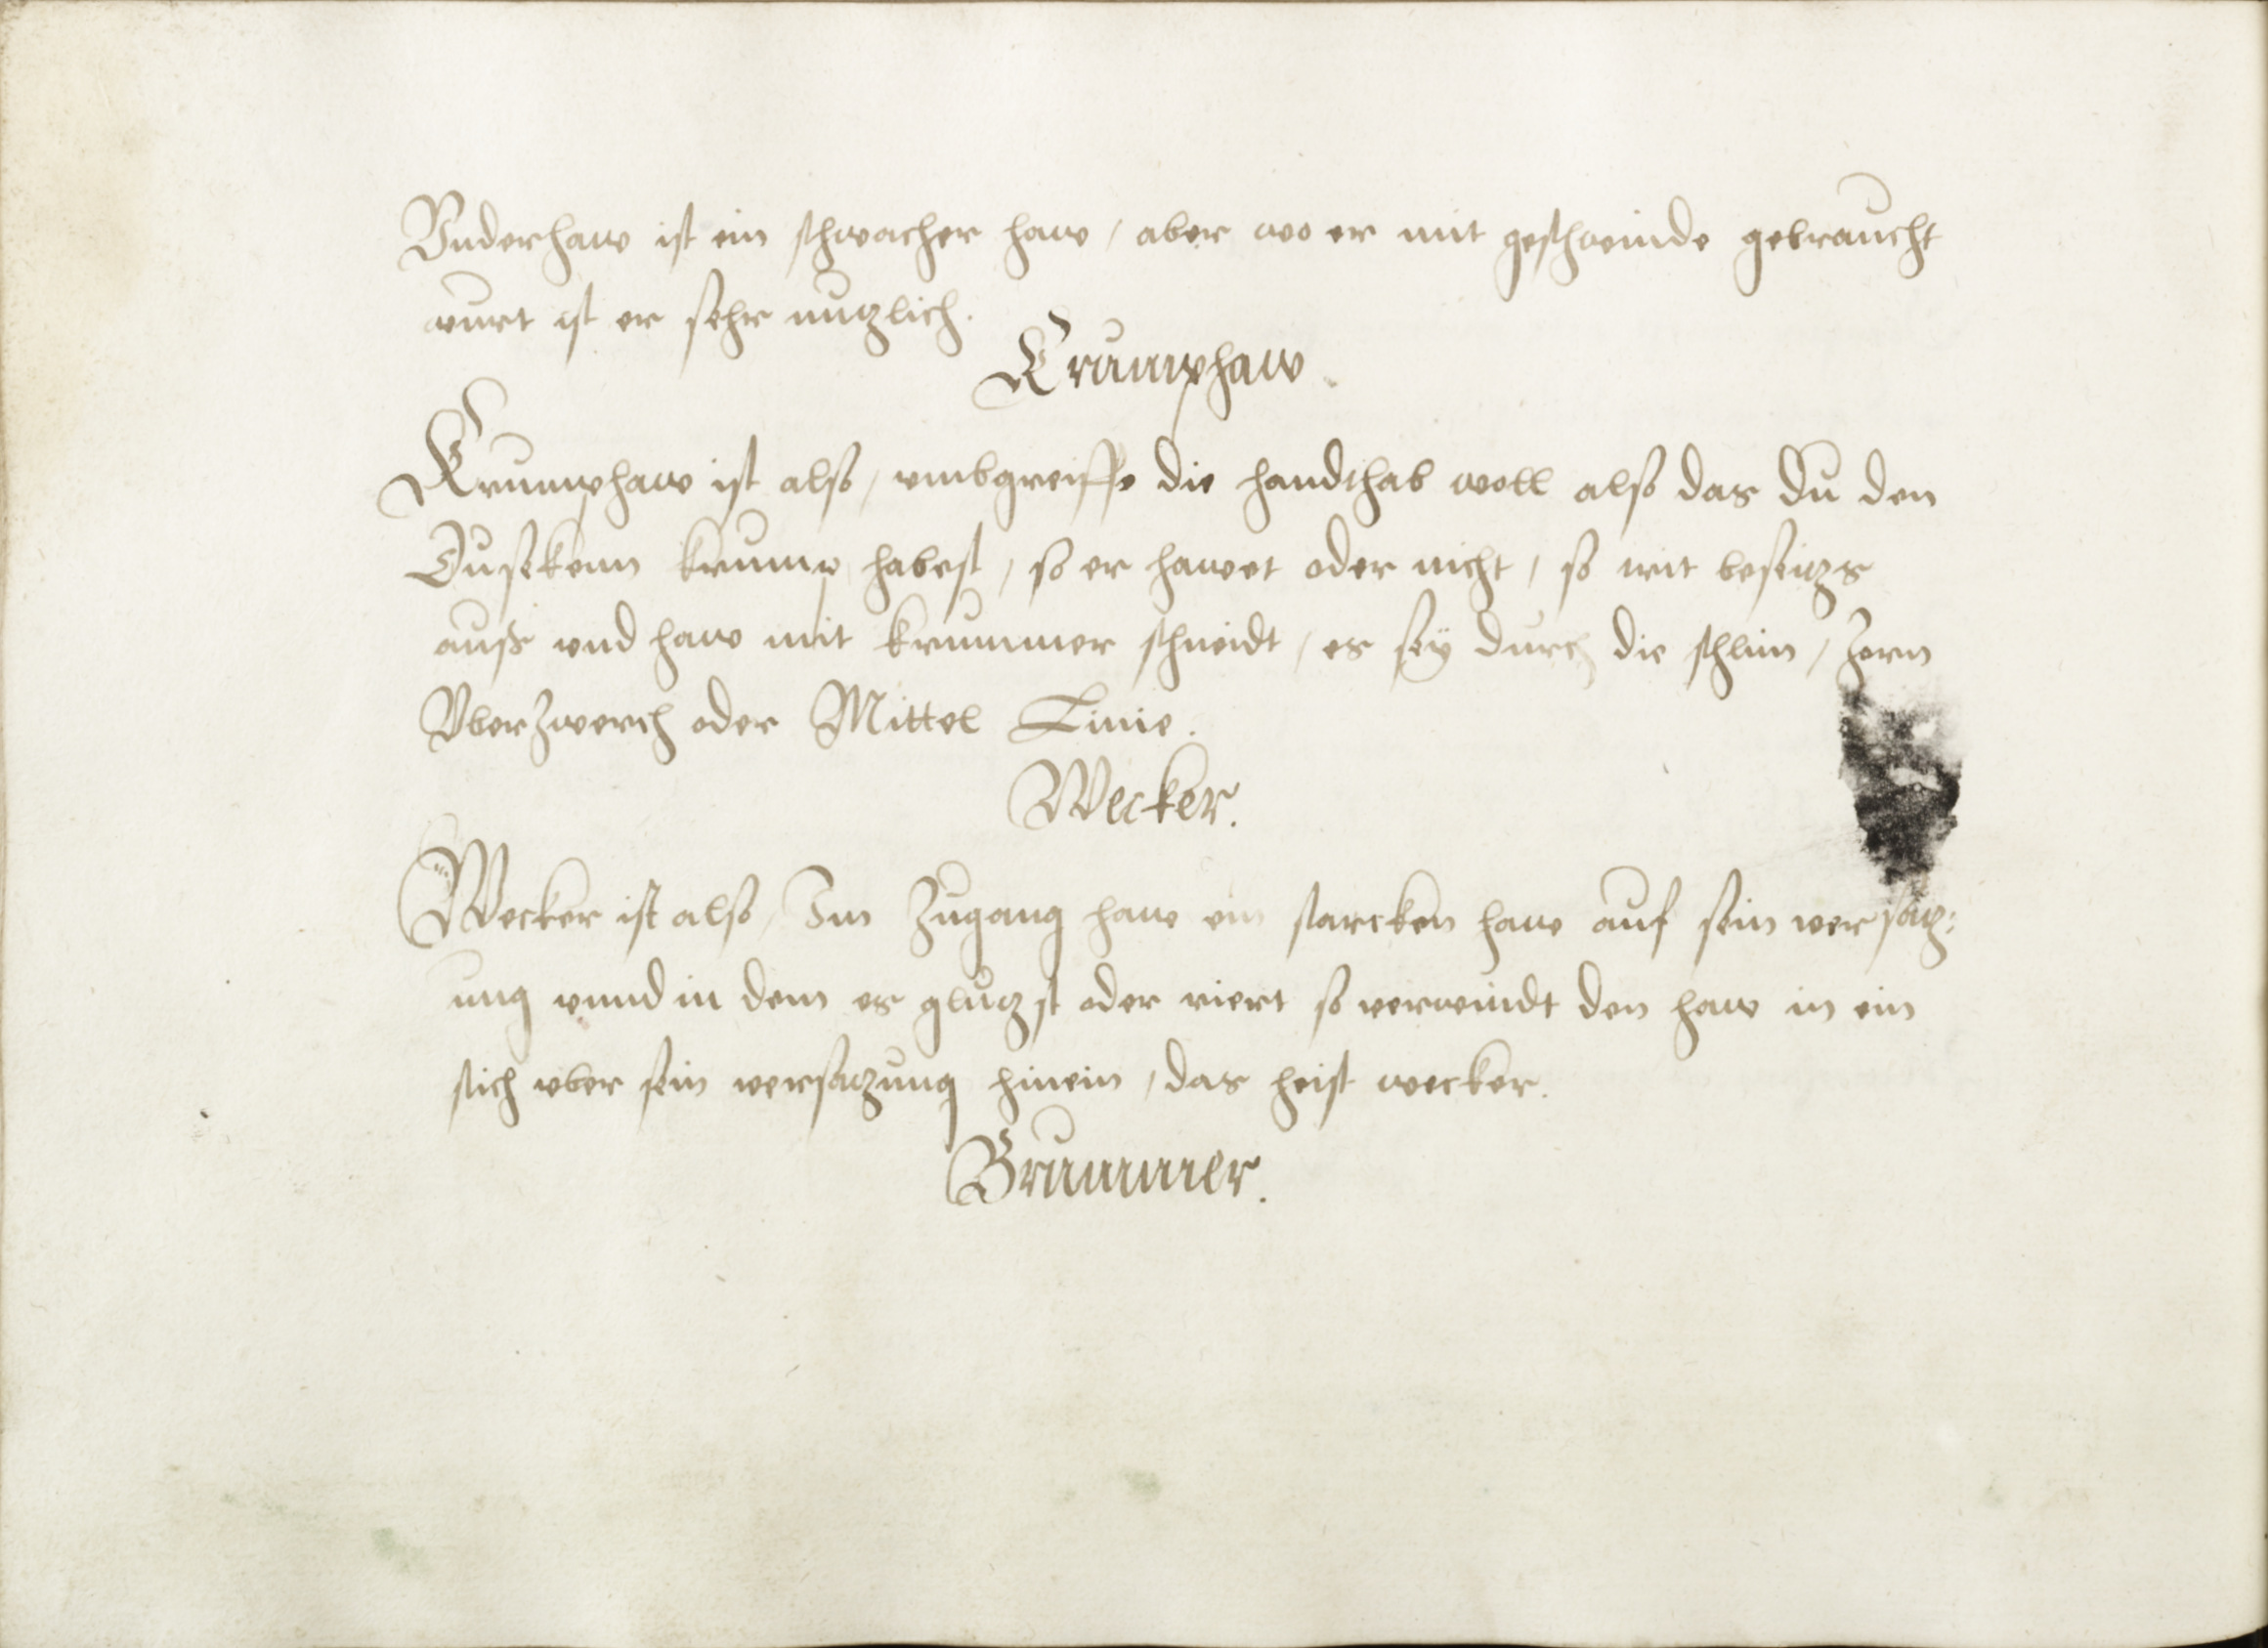 Vnderhaw ist ein schwacher haw / aber wo er mit geschwinde gebraucht
wurt ist er sehr nutzlich.
Krumphaw.
Krumphaw ist also / vmbgreiffe die handthab woll also das du den
Dusekenn krump habest / so er hawet oder nicht / so trit beseitzs
auß vnd haw mit krummer schneidt / es seÿ durch die schlim / Zorn
Vberzwerch oder Mittel Linie.
Wecker.
Wecker ist also / Im Zugang haw ein starcken haw auf sein versatz:
ung vnnd in dem es glutzst oder riert so verwindt den haw in ein
stich vber sein versatzung hinein / das heist wecker.
Brummer.